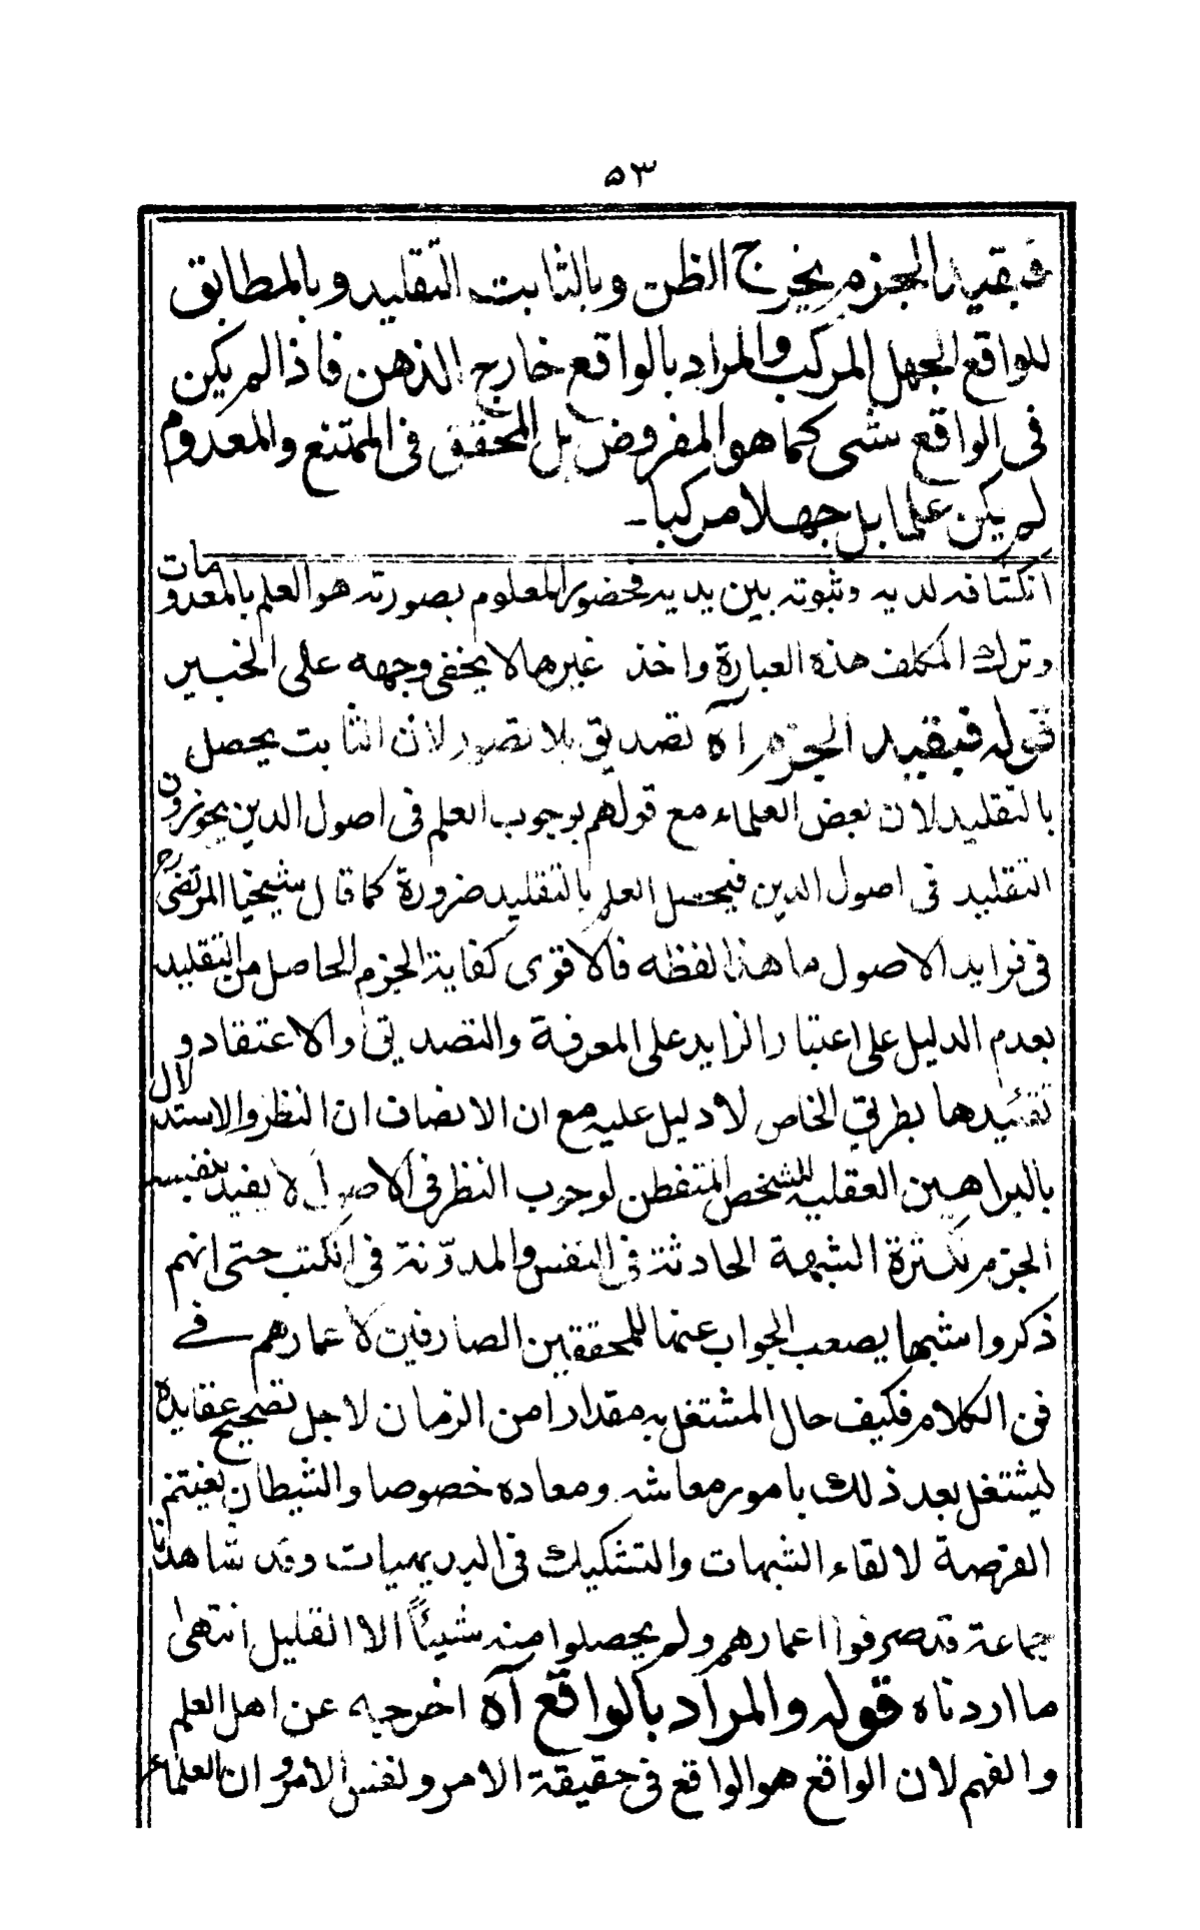 ٥٣
فبقيد الجزم يخرج الظن وبالثابت التقليد وبالمطابق
للواقع الجهل المركب والمراد بالواقع خارج الذهن فاذا لم يكن
فى الواقع شى كما هو المفروض بل المحقق فى الممتنع والمعدوم
لم يكن علما بل جهلا مركبا ـ
انكشافه لديه وثبوته بين يديه فحضور المعلوم بصورته هو العلم بالمعدومات
وترك المكلف هذه العبارة واخذ غيرها لا يخفى وجهه على الخبير
قوله فبقيد الجزم اه تصديق بلا تصور لان الثابت يحصل
بالتقليد لان بعض العلماء مع قولهم بوجوب العلم فى اصول الدين يجوزون
التقليد فى اصول الدين فيحصل العلم بالتقليد ضرورة كما قال شيخنا المرتضى رح
فى فرايد الاصول ما هذا لفظه فالاقوى كفاية الجزم الحاصل من التقليد
بعدم الدليل على اعتبار الزايد على المعرفة والتصديق والاعتقاد و
تقييدها بطريق الخاص لا دليل عليه مع ان الانصاف ان النظر والاستدلال
بالبراهين العقليه للشخص المتفطن لوجوب النظر فى الاصول لا يفيد بنفسه
الجزم لكثرة الشبهة الحادثة فى النفس والمدوّنة فى الكتب حتى انهم
ذكروا شبها يصعب الجواب عنها للمحققين الصارفين لاعمارهم فے
فى الكلام فكيف حال المشتغل به مقدارا من الزمان لاجل تصحيح عقايده
ليشتغل بعد ذلك بامور معاشه ومعاده خصوصا والشيطان يغتنم
الفرصة لالقاء الشبهات والتشكيك فى البديهيات وقد شاهدنا
جماعة قد صرفوا اعمارهم ولم يحصلوا منه شيئاً الا القليل انتهى
ما اردناه قوله والمراد بالواقع آه اخرجه عن اهل العلم
والفهم لان الواقع هو الواقع فى حقيقة الامر ونفس الامر وان العلماء